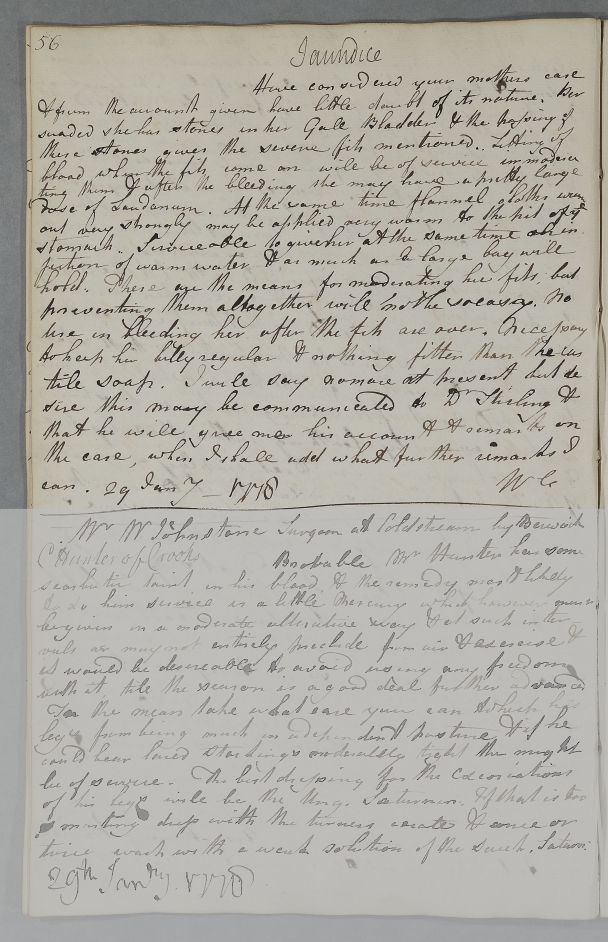 56
Jaundice
Have considered your mothers case
& from the account given have little doubt of its nature. Per
suaded she has stones in her Gall Bladder & the passing of
these stones gives the severe fits mentioned. Letting of
blood when the fits come on will be of service in modera
ting them & after the bleeding she may have a pretty large
dose of Laudanum. At the same time flannel cloths wrung
out very strongly may be applied very warm to the pit of ye
stomach. Serviceable to give her at the same time an in
jection of warm water & as much as a large bag will
hold. These are the means for moderating her fits, but
preventing them altogether will not be so easy. No
use in bleeding her after the fits are over. Necessary
to keep her belly regular & nothing fitter than the cas
tile soap. I will say no more at present but de
sire this may be communicated to Dr Stirling &
that he will give me his account & remarks on
the case, when I shall add what further remarks I
can. 29 Jany 1778 WC
Mr W Johnstone Surgeon at Coldstream by Berwick
C Hunter of Crooks Probable Mr Hunter has some
scorbutic taint in his blood & the remedy most likely
to do him service is a little Mercury which however must
be given in a moderate alterative way & at such inter
vals as may not entirely preclude from air & exercise &
it would be desireable to avoid using any freedom
with it, till the season is a good deal further advanced
In the mean take what care you can to keep his
legs from being much in a dependent posture & if he
could bear laced stockings moderately tight they might
be of service. The best dressing for the Excoriations
of his legs will be the Ung. Saturnin. If that is too
dress with the turners cerate & once or
twice wash with a weak solution of the Sacch. Saturni.
29th Janry. 1778